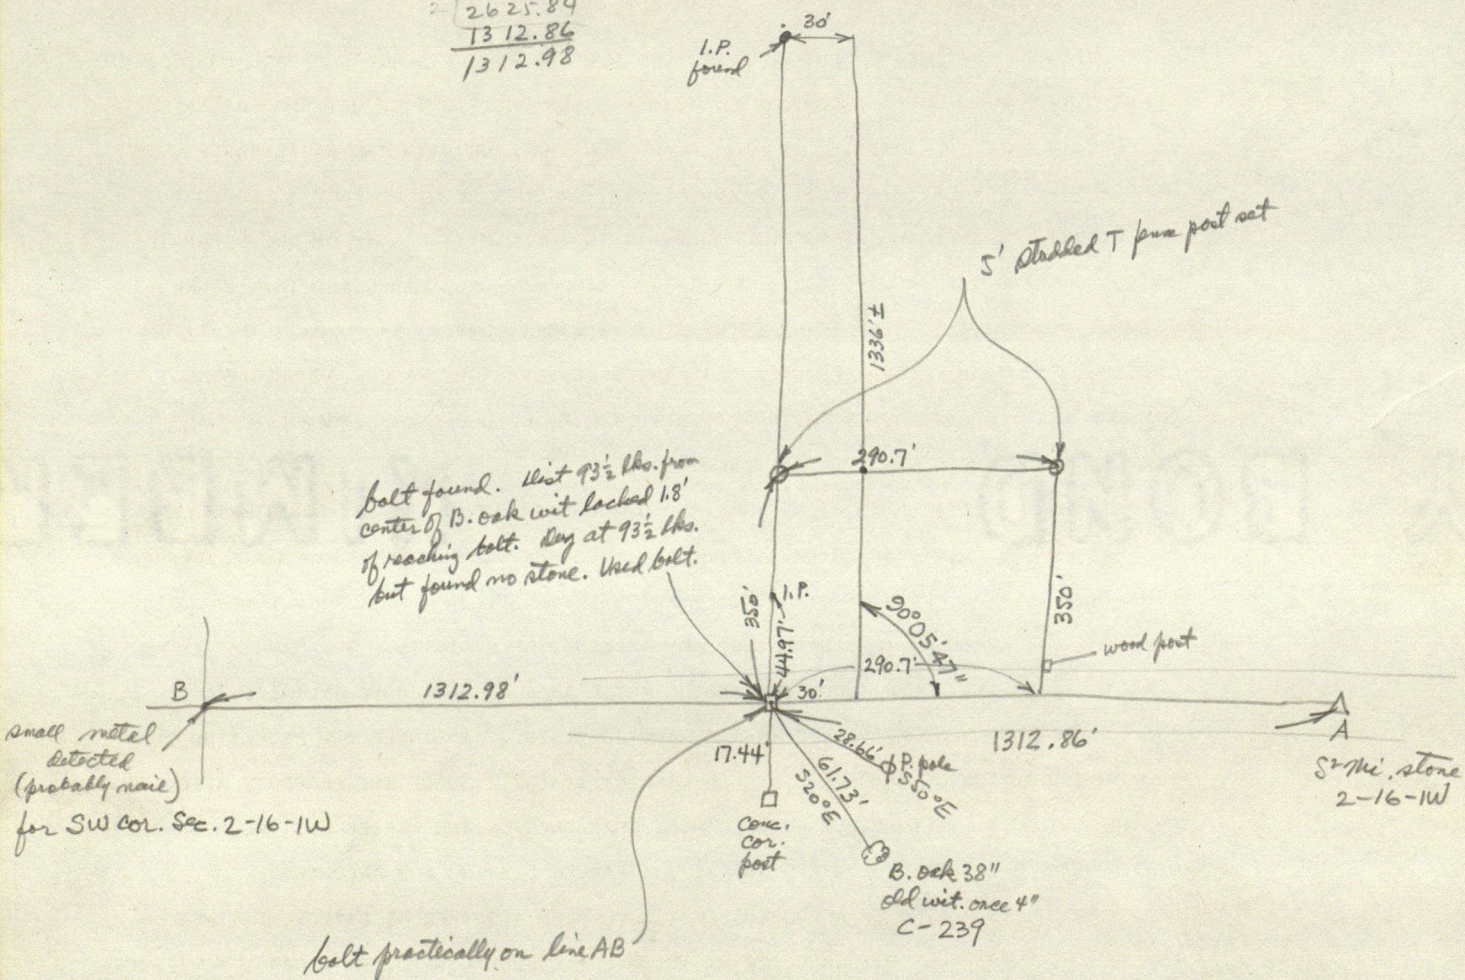 2 2625.84
1312.86
1312.98
30'
I.P.
found
5' studded T fence post set
1336'±
290.7'
bolt found. Dist 93½ lks. from
center of B. oak wit lacked 1.8'
of reaching bolt. Dug at 93½ lks.
but found no stone. Used bolt.
350'
I.P.
44.97'
90°05'47"
350'
wood post
290.7'
30'
B
1312.98'
small metal
detected
(probably nail)
for SW cor. Sec. 2-16-1W
17.44'
28.66'
P. pole
S50°E
61.73'
S20°E
1312.86'
A
S² Mi. stone
2-16-1W
conc.
cor.
post
B. oak 38"
old wit. once 4"
C-239
bolt practically on line AB